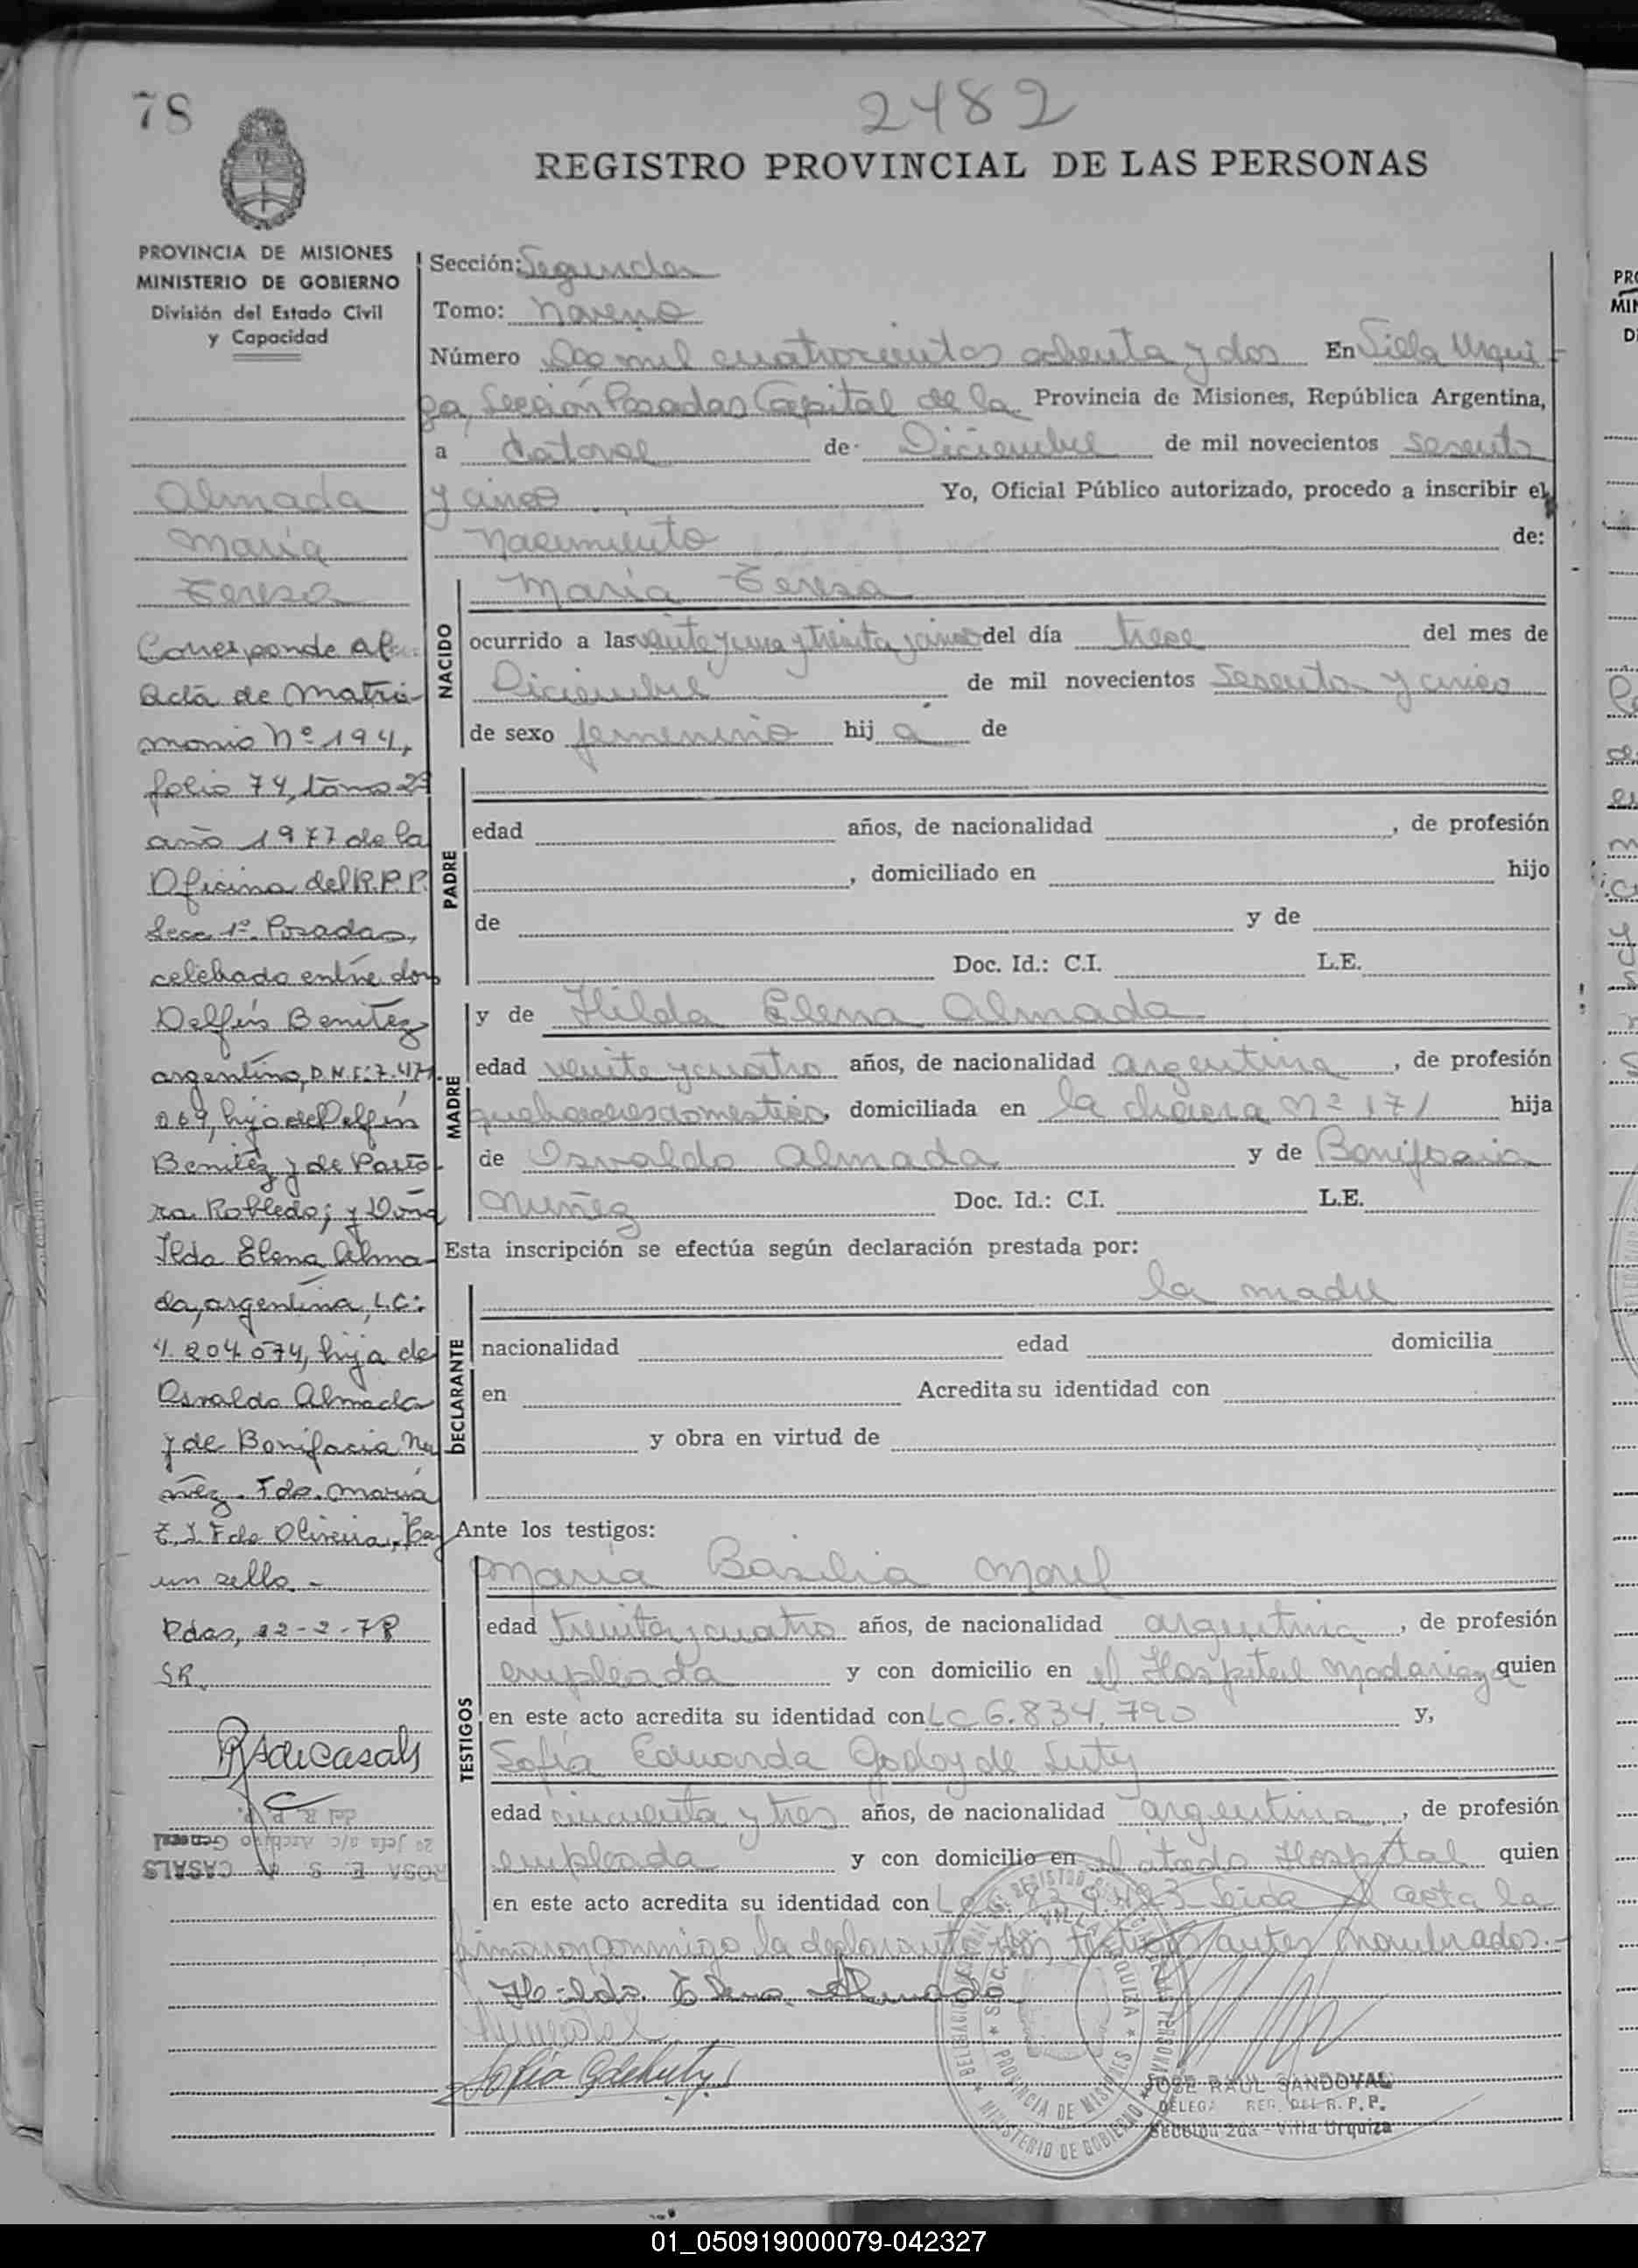 78
2482
REGISTRO PROVINCIAL DE LAS PERSONAS
PROVINCIA DE MISIONES
MINISTERIO DE GOBIERNO
División del Estado Civil
y Capacidad
Almada
María
Teresa
Corresponde al
Acta de Matri-
monio Nº 194,
folio 74, tomo 2º
año 1977 de la
Oficina del R.P.P.
Secc 1ª. Posadas,
celebrado entre don
Delfín Benítez
argentino, D.N.I: 7.471.
069, hijo de Delfín
Benítez y de Pasto-
ra Robledo; y Doña
Ilda Elena Alma-
da, argentina, L.C:
4.204.074, hija de
Osvaldo Almada
y de Bonifacia Nu
ñez. Fdo. María
E. J. F de Oliveira, Hay
un sello.-
Pdas, 22-2-78
SR.
RSdeCasals
del R. P. P.
2º Jefa a/c Archivo General
ROSA E. S. CASALS
Sección: Segunda
Tomo: Noveno
Número Dos mil cuatrocientos ochenta y dos En Villa Urqui-
za, Sección Posadas Capital de la Provincia de Misiones, República Argentina,
a Catorce de Diciembre de mil novecientos sesenta
y cinco Yo, Oficial Público autorizado, procedo a inscribir el
Nacimiento de:
NACIDO
María Teresa
ocurrido a las veinte y una y treinta y cinco del día trece del mes de
Diciembre de mil novecientos sesenta y cinco
de sexo femenino hij a de
PADRE
edad años, de nacionalidad , de profesión
, domiciliado en hijo
de y de
Doc. Id.: C.I. L.E.
MADRE
y de Hilda Elena Almada
edad veinte y cuatro años, de nacionalidad argentina, de profesión
quehaceres domésticos, domiciliada en la chacra Nº 171 hija
de Osvaldo Almada y de Bonifacia
Nuñez Doc. Id.: C.I. L.E.
Esta inscripción se efectúa según declaración prestada por:
DECLARANTE
la madre
nacionalidad edad domicilia
en Acredita su identidad con
y obra en virtud de
Ante los testigos:
TESTIGOS
María Basilia Morel
edad treinta y cuatro años, de nacionalidad argentina, de profesión
empleada y con domicilio en el Hospital Madariaga quien
en este acto acredita su identidad con LC 6.834.790 y,
Sofía Eduarda Godoy de Luty
edad cincuenta y tres años, de nacionalidad argentina, de profesión
empleada y con domicilio en el citado Hospital quien
en este acto acredita su identidad con Leida el acta la
firmaron conmigo la declarante y los testigos antes nombrados.-
Hilda Elena Almada
Sofía G de Luty
PROVINCIA DE MISIONES
MINISTERIO DE GOBIERNO
VILLA URQUIZA
JOSE RAUL SANDOVAL
DELEGA REG. DEL R. P. P.
Sección 2da - Villa Urquiza
01_050919000079-042327